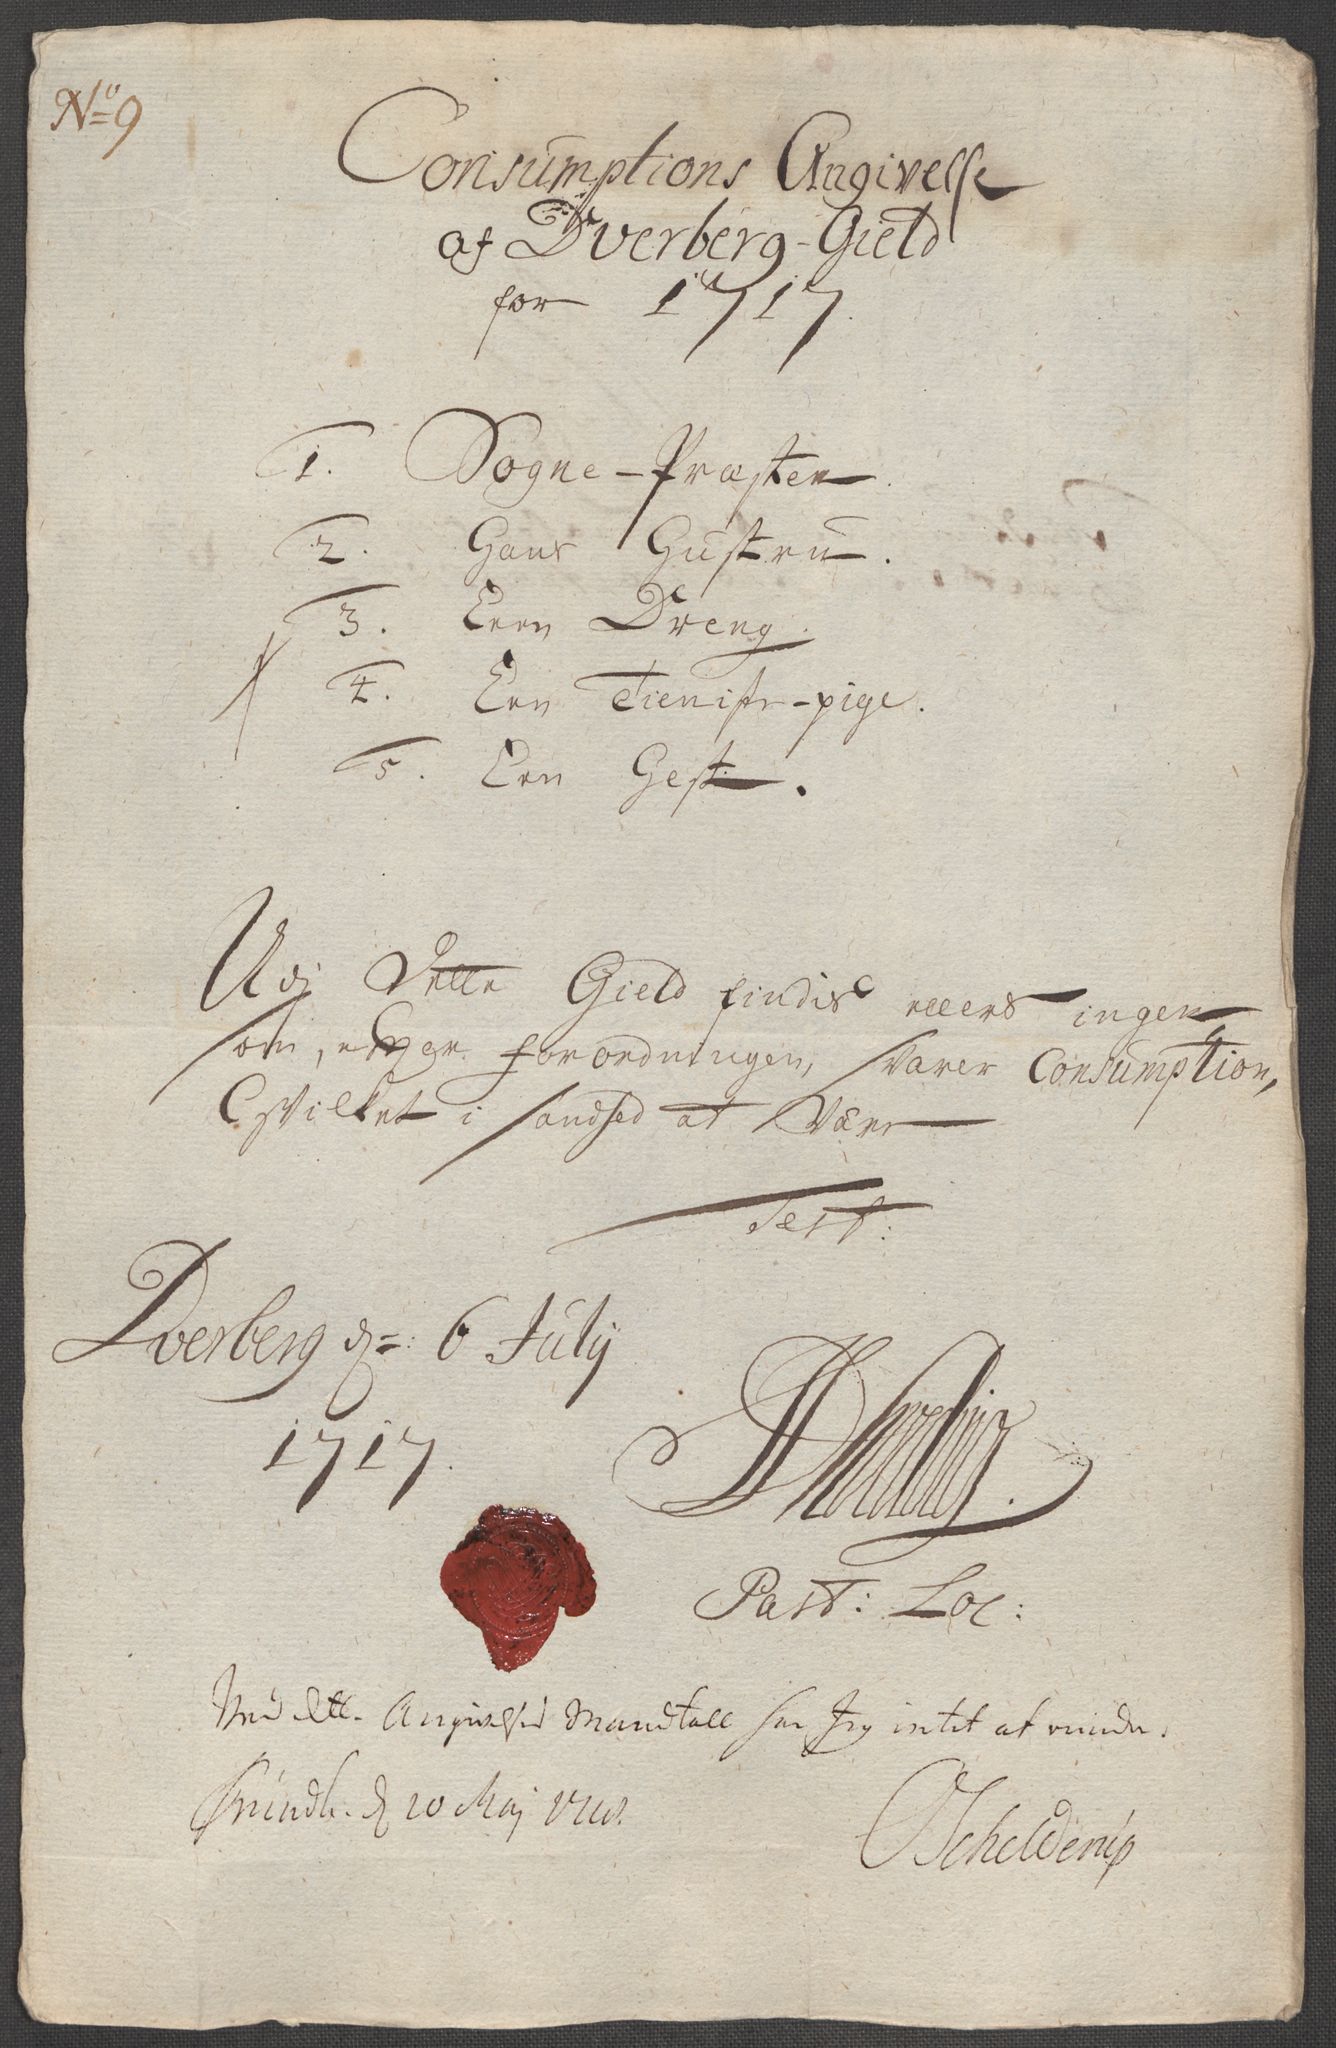 No 9
Consumptions Angivelse
af Dverberg-Gield
for 1717.
1. Sogne-Præsten.
2. Hans Hustru.
3. Een Dreng.
4. Een Tieniste-pige.
5. Een Gest.
Udi dette Gield findis ellers ingen
som, efter forordningen, svarer Consumption,
Hvilket i sandhed at være
Test:
Dverberg d: 6 July
1717.
Past: Loc:
Ved dette Angivelsis Mandtall har Jeg intet at minde.
d 20 Maj 1718.
OSchelderup